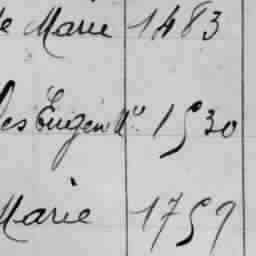 de Marie 1483
des Eugen Nu 1530
Marie 1759